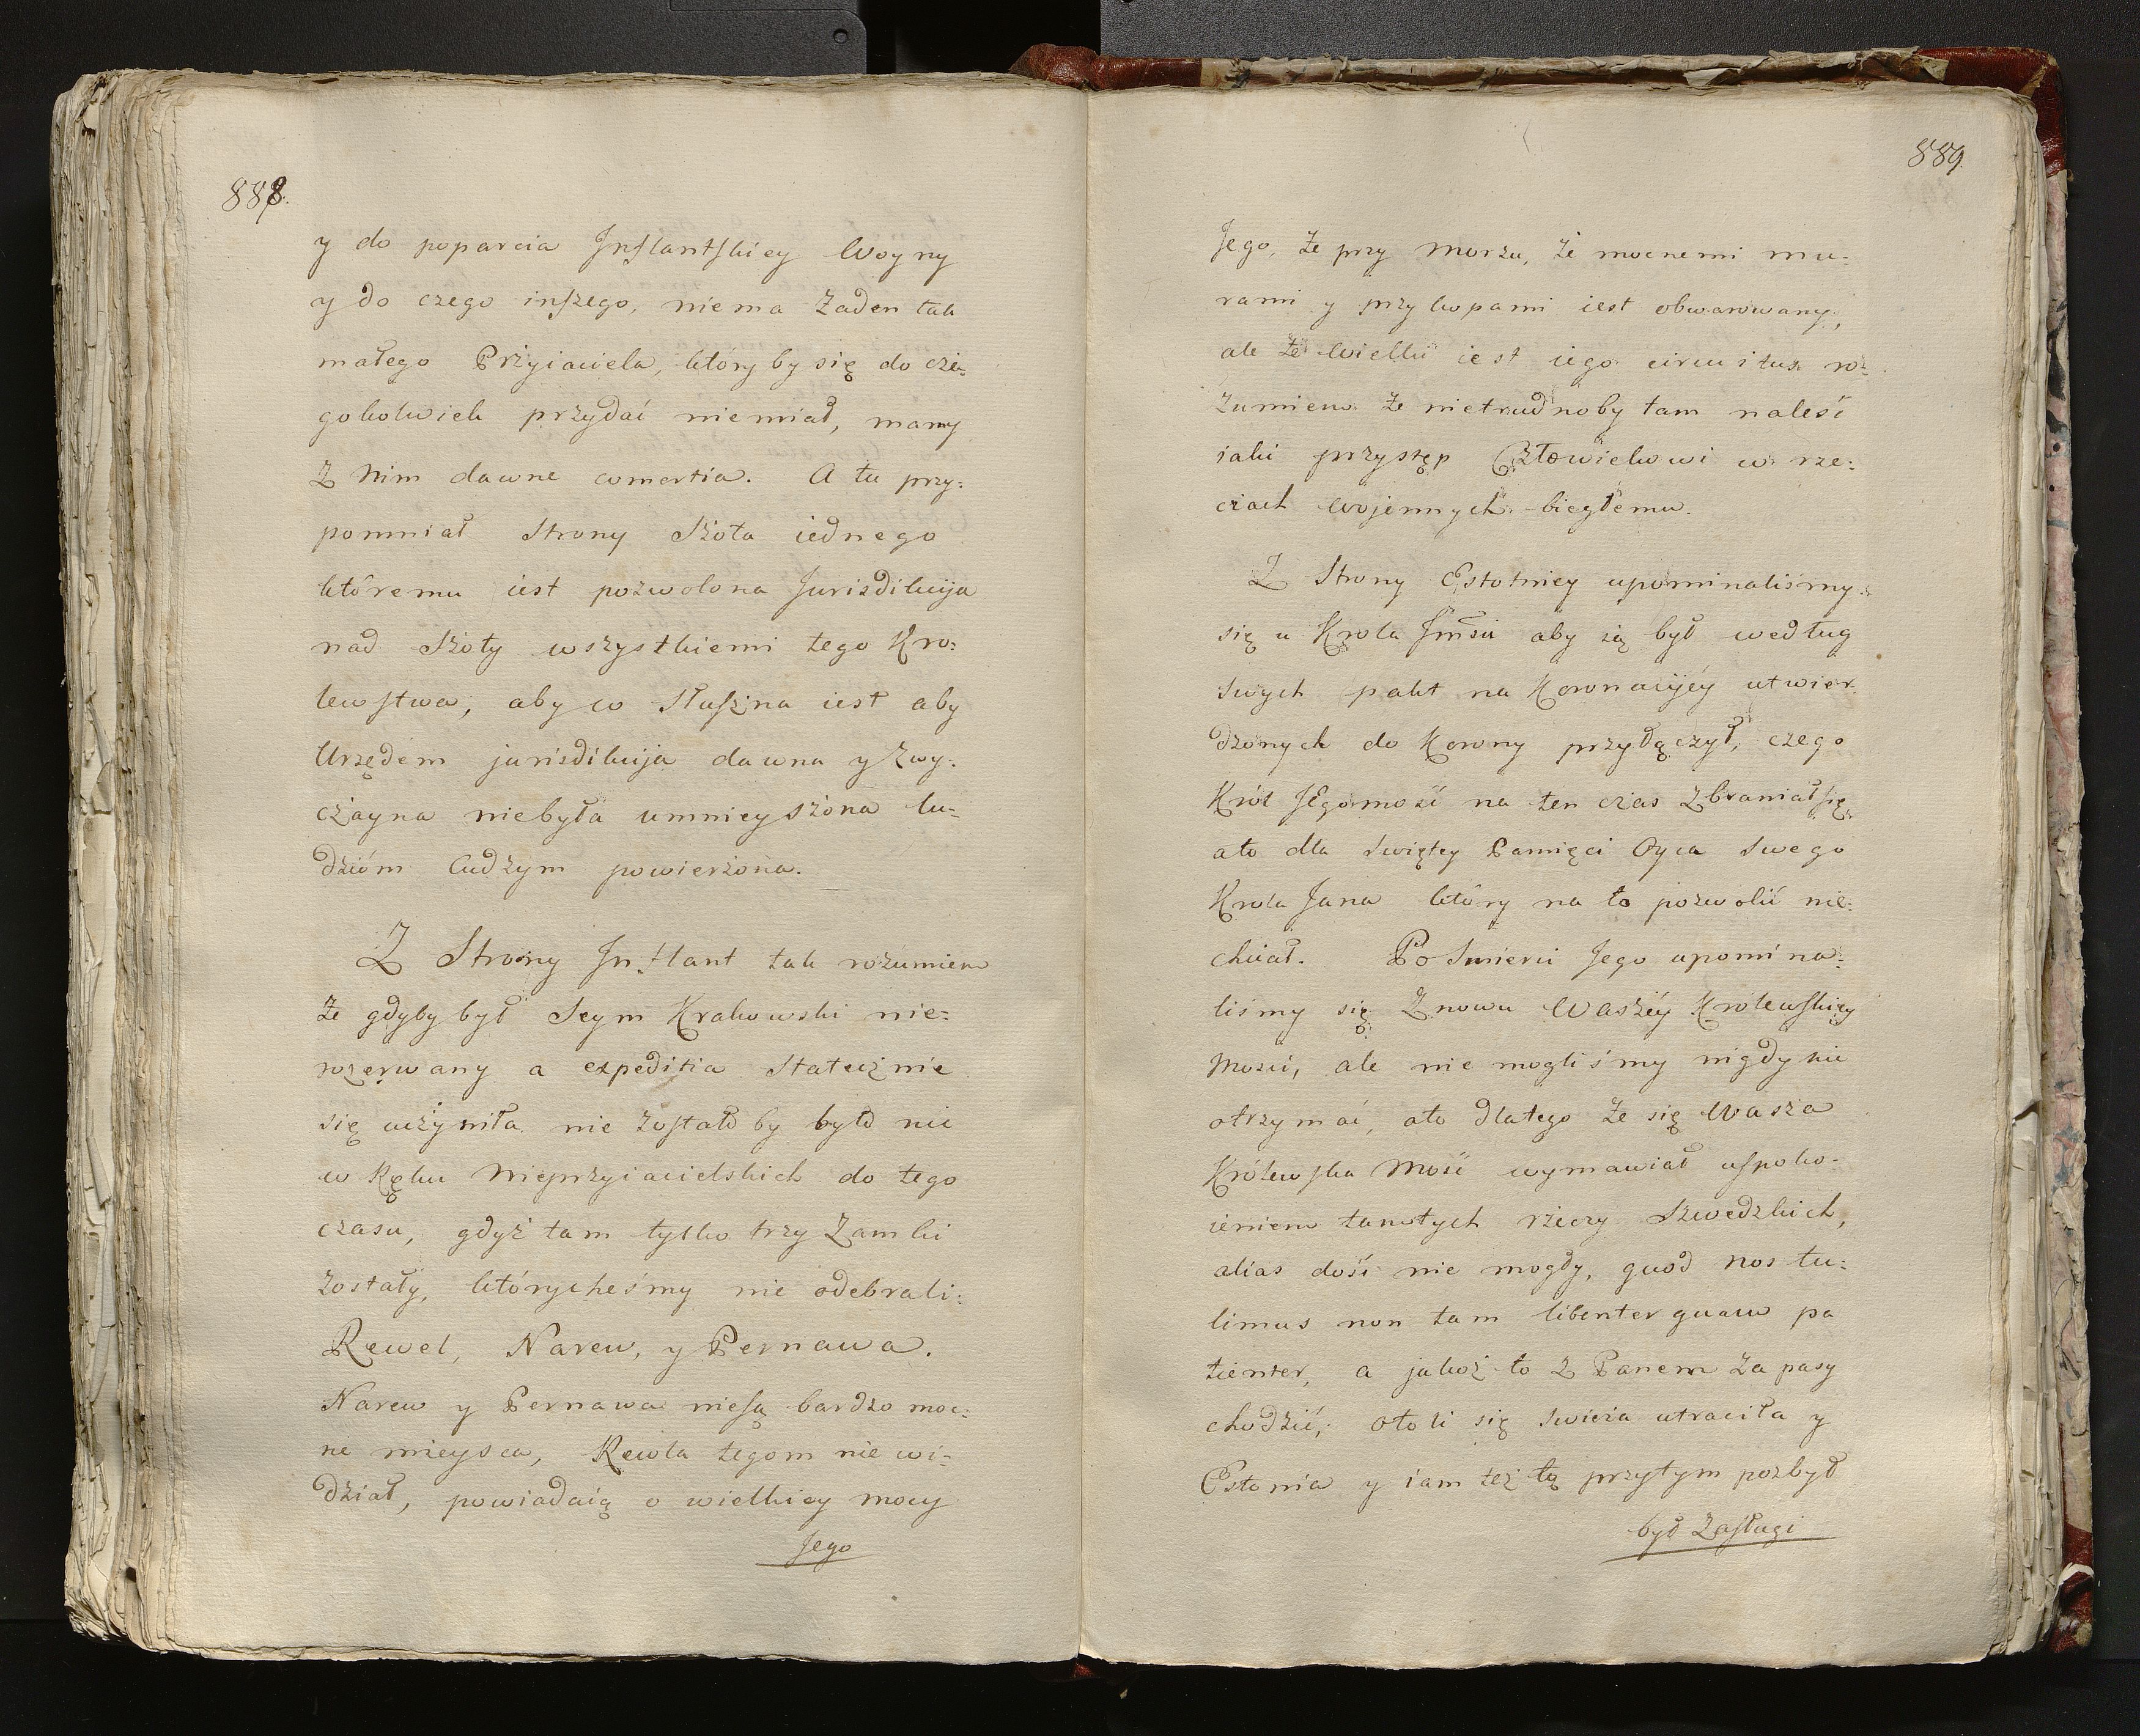 888.
y do poparcia Inflantskiey Woyny
y do czego inszego, niema Zaden tak
małego Przyiaciela, który by się do cze-
gokolwiek przydać niemiał, mamy
Z Nim dawne comertia. A tu przy:
pomniał Strony Szota iednego
któremu iest pozwolona Jurisdikcija
nad Szoty wszystkiemi tego Kro:
lewstwa, aby co Słuszna iest aby
Urzędem jurisdikcija dawna y Zwy:
czayna niebyła umnieyszona lu-
dzióm Cudzym powierzona.
Z Strony Inflant tak rozumiem
Ze gdyby był Seym Krakowski nie:
rozerwany a expeditia Statecznie
się uczyniła nie Zostało by było nic
w Ręku Nieprzyiacielskich do tego
czasu, gdyż tam tylko trzy Zamki
Zostały, którycheśmy nie odebrali:
Rewel, Narew, y Pernawa.
Narew y Pernawa niesą bardzo moc:
ne mieysca, Rewla tegom nie wi:
dział, powiadaią o wielkiey mocy
Jego
889.
Jego, Ze przy Morzu, że mocnemi mu:
rami y przykopami iest obwarowany,
ale Ze Wielki iest iego circuitus ro:
zumiem Ze nietrudnoby tam naleść
iaki przystęp Człowiekowi w rze:
czach Wojennych biegłemu.
Z Strony Estotniey upominaliśmy
się u Krola Jmści aby ią był według
Swych pakt na Koronacijéy utwier
dzonych do Korony przyłączył, czego
Król JEgomość na ten czas Zbraniał się
ato dla Swiętey Pamięci Oyca Swego
Krola Jana który na to pozwolić nie:
chciał. Po Smierci Jego upomina:
liśmy się Znowu Waszéy Królewskiey
Mości, ale nie mogliśmy nigdy nic
otrzymać, ato dlatego Ze się Wasza
Królewska Mość wymawiał uspoko:
ieniem tamtych rzeczy Szwedzkich,
alias dość nie mogły, quod nos tu:
limus non tam libenter quam pa
tienter, a jakoż to Z Panem Za pasy
chodzić; oto li się Swieża utraciła y
Estonia y iam też tę przytym pozbył
był Zasługi